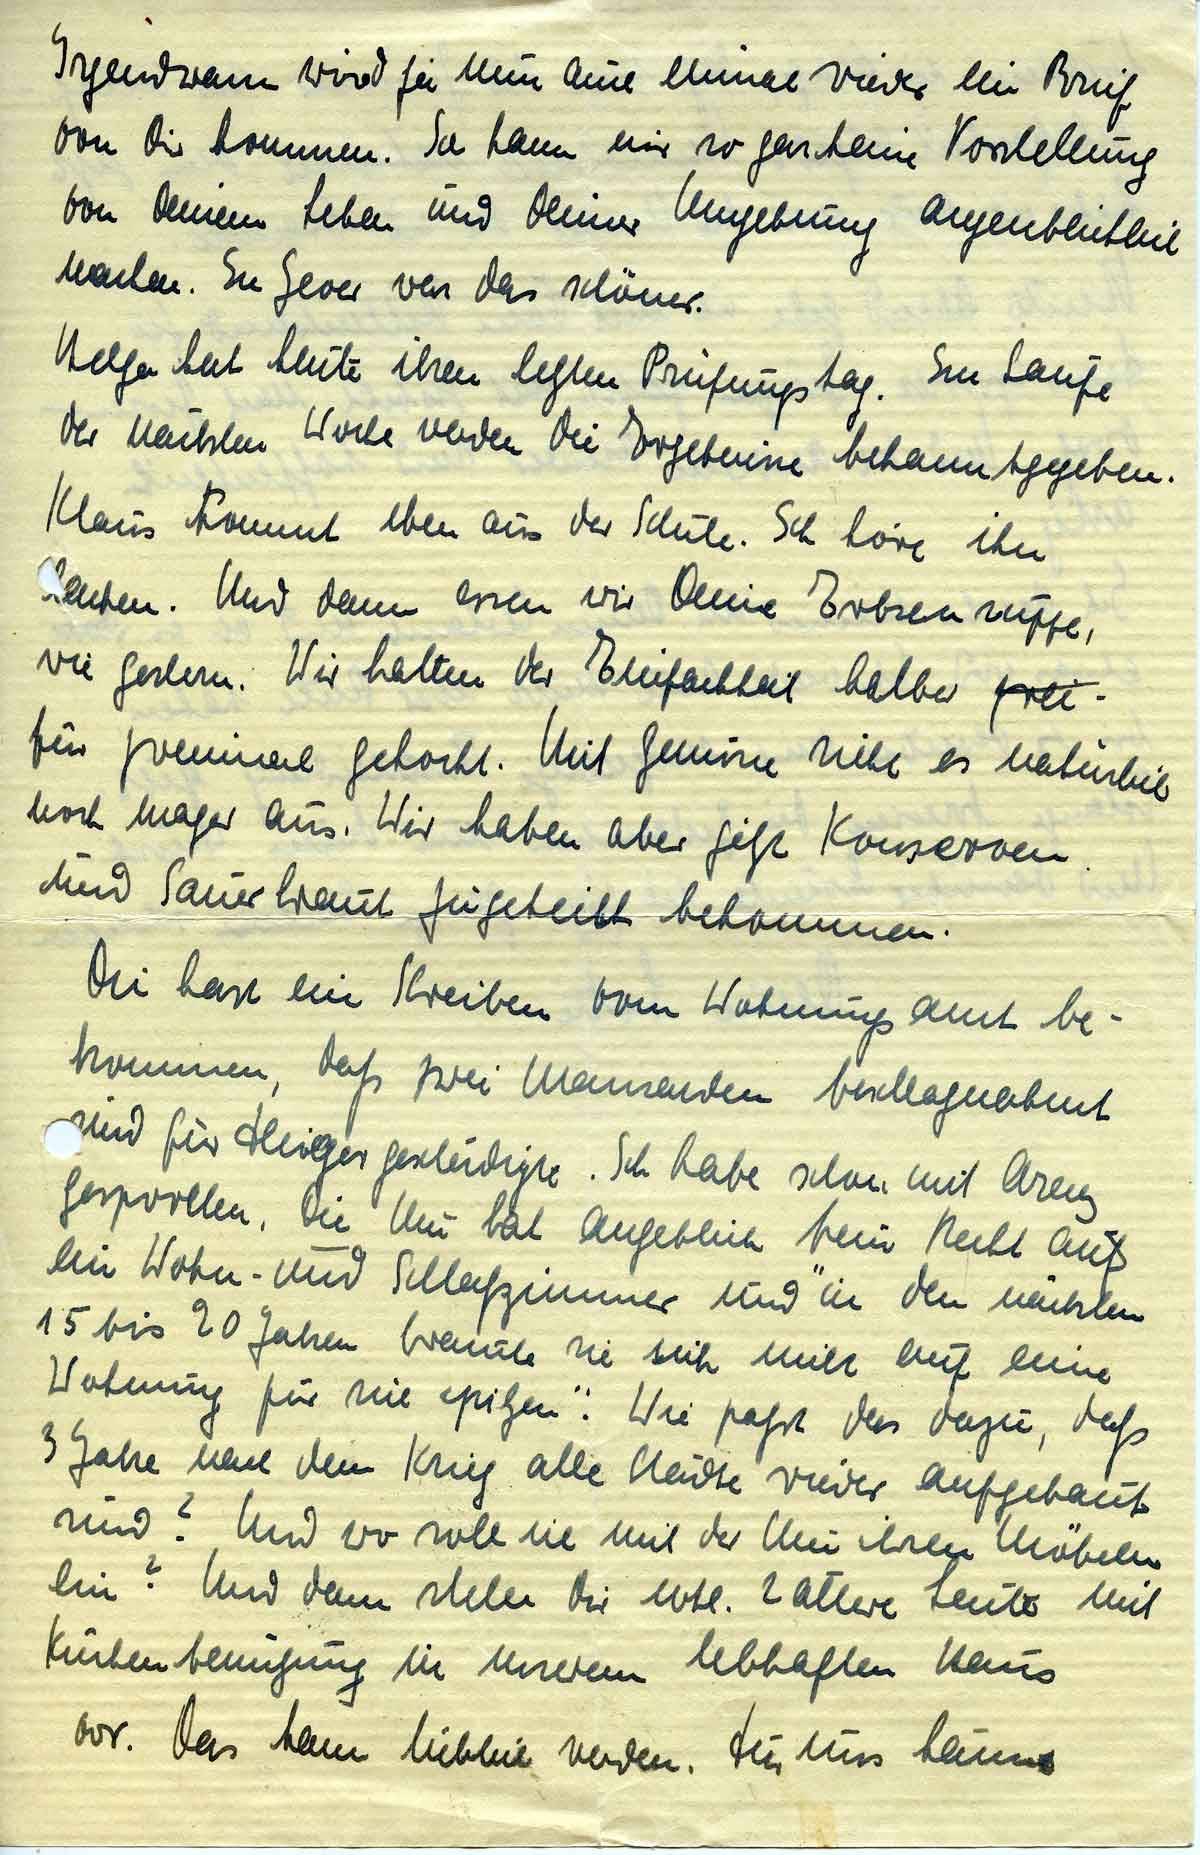 Irgendwann wird ja nun auch einmal wieder ein Brief
von Dir kommen. Ich kann mir so gar keine Vorstellung
von Deinem Leben und Deiner Umgebung augenblicklich
machen. In Jever war das schöner.
Helga hat heute ihren letzten Prüfungstag. Im Laufe
der nächsten Woche werden die Ergebnisse bekanntgegeben.
Klaus kommt eben aus der Schule. Ich höre ihn
läuten. Und dann essen wir Deine Erbsensuppe,
wie gestern. Wir hatten der Einfachheit halber
für zweimal gekocht. Mit Gemüse sieht es natürlich
noch mager aus. Wir haben aber jetzt Konserven
und Sauerkraut zugeteilt bekommen.
Du hast ein Schreiben vom Wohnungsamt be-
kommen, daß zwei Mansarden beschlagnahmt
sind für Fliegergeschädigte. Ich habe schon mit
gesprochen. Die hat angeblich kein Recht auf
ein Wohn- und Schlafzimmer und "in den nächsten
15 bis 20 Jahren brauche sie sich nicht auf eine
Wohnung für sie spitzen". Wie paßt das dazu, daß
3 Jahre nach dem Krieg alle Städte wieder aufgebaut
sind? Und wo soll sie mit der ihren Möbeln
hin? Und dann stelle Dir evtl. 2 ältere Leute mit
Küchenbenutzung in unserem lebhaften Haus
vor. Das kann lieblich werden. Für uns kaum